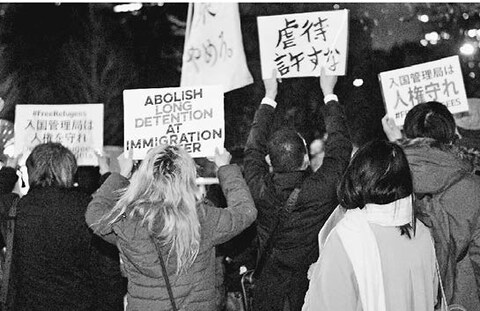 #FreeRefugees
入国管理局は
人権
ABOLISH
LONG
DETENTION
AT
IMMIGRATION
やめろ
虐待
許すな
入国管理局は
人権守れ